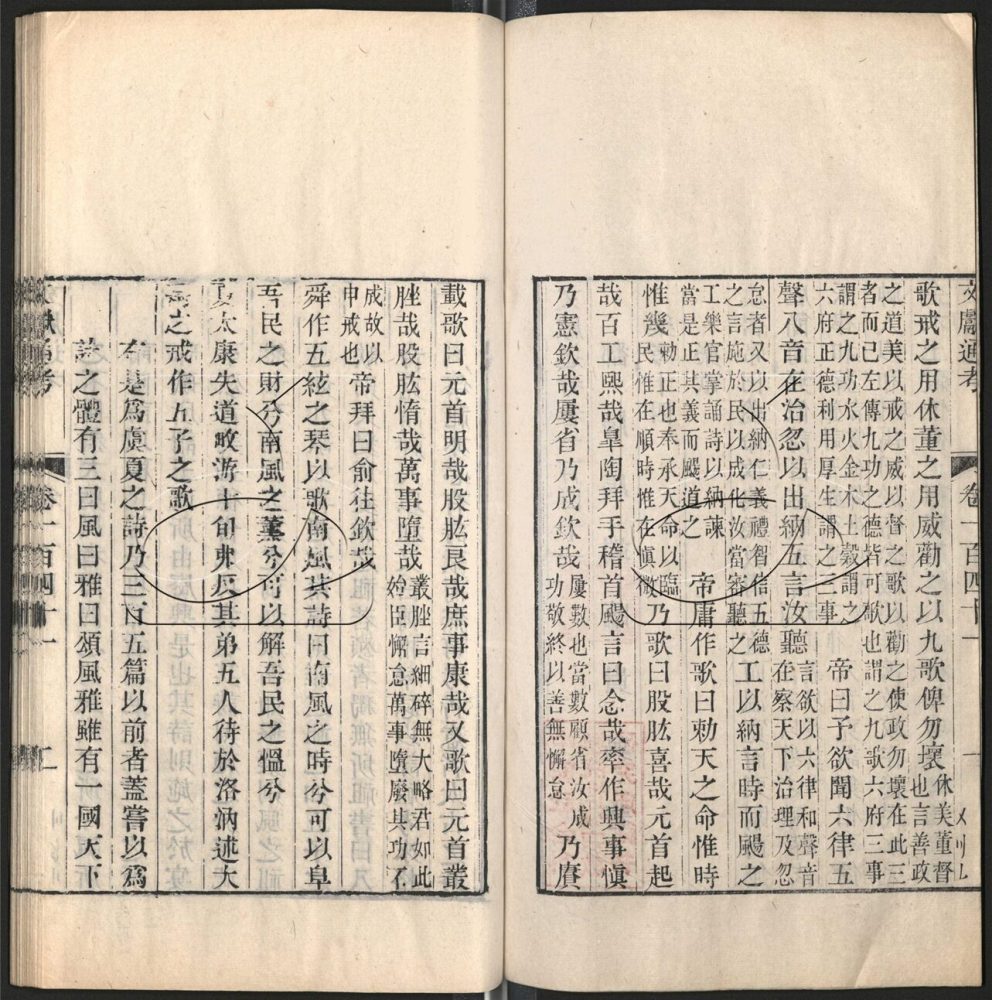 文獻通考 卷一百四十一 一
歌戒之用休董之用威勸之以九歌俾勿壞休美董督也言善政
之道美以戒之威以督之歌以勸之使政勿壞在此三者而已左傳九功之德皆可歌也謂之九歌六府三事
謂之九功水火金木土穀謂之六府正德利用厚生謂之三事 帝曰予欲聞六律五
聲八音在治忽以出納五言汝聽言欲以六律和聲音在察天下治理及忽
怠者又以出納仁義禮智信五德之言施於民以成化汝當審聽之 工以納言時而颺之
工樂官掌誦詩以納諫當是正其義而颺道之 帝庸作歌曰勑天之命惟時
惟幾勑正也奉承天命以臨民惟在順時惟在慎微 乃歌曰股肱喜哉元首起
哉百工熙哉臯陶拜手稽首颺言曰念哉率作興事慎
乃憲欽哉屢省乃成欽哉屢數也當數顧省汝成功敬終以善無懈怠 乃賡
載歌曰元首明哉股肱良哉庶事康哉又歌曰元首叢
脞哉股肱惰哉萬事墮哉叢脞言細碎無大略君如此始臣懈怠萬事墮廢其功不
成故以申戒也 帝拜曰俞往欽哉
舜作五絃之琴以歌南風其詩曰南風之時兮可以阜
吾民之財兮南風之薰兮可以解吾民之慍兮
夏太康失道畋游十旬弗反其弟五人待於洛汭述大
之戒作五子之歌
右是爲虞夏之詩乃三百五篇以前者蓋嘗以爲
詩之體有三曰風曰雅曰頌風雅雖有一國天下
文獻通考 卷一百四十一